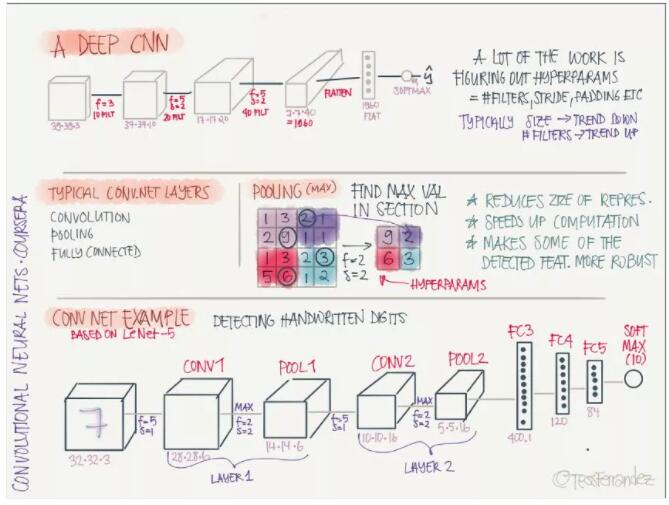 A DEEP CNN
39·39·3
f=3
10 FILT
37·37·10
f=5
s=2
20 FILT
17·17·20
f=5
s=2
40 FILT
7·7·40
=1960
FLATTEN
1960
FLAT
SOFTMAX
ŷ
A LOT OF THE WORK IS
FIGURING OUT HYPERPARAMS
= #FILTERS, STRIDE, PADDING ETC
TYPICALLY SIZE → TREND DOWN
# FILTERS → TREND UP
TYPICAL CONV.NET LAYERS
CONVOLUTION
POOLING
FULLY CONNECTED
POOLING (MAX)
FIND MAX VAL
IN SECTION
1 3 2 1
2 9 1 1
1 3 2 3
5 6 1 2
f=2
s=2
9 2
6 3
HYPERPARAMS
REDUCES SIZE OF REPRES.
SPEEDS UP COMPUTATION
MAKES SOME OF THE
DETECTED FEAT. MORE ROBUST
CONV NET EXAMPLE
BASED ON LeNet-5
DETECTING HANDWRITTEN DIGITS
7
32·32·3
f=5
s=1
CONV1
28·28·6
MAX
f=2
s=2
POOL1
14·14·6
LAYER 1
f=5
s=1
CONV2
10·10·16
MAX
f=2
s=2
POOL2
5·5·16
LAYER 2
FC3
400,1
FC4
120
FC5
84
SOFT
MAX
(10)
CONVOLUTIONAL NEURAL NETS · COURSERA
©TessFerrandez